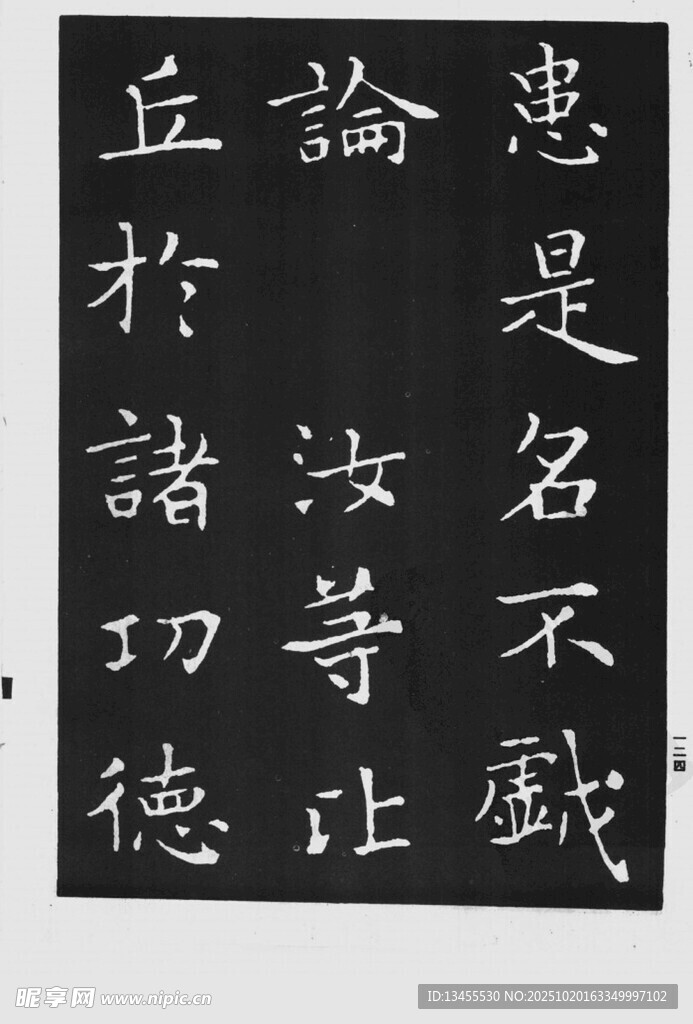 患是名不戯
論 汝等比
丘於諸功德
一二四
昵享网 www.nipic.cn
ID:13455530 NO:20251020163349997102